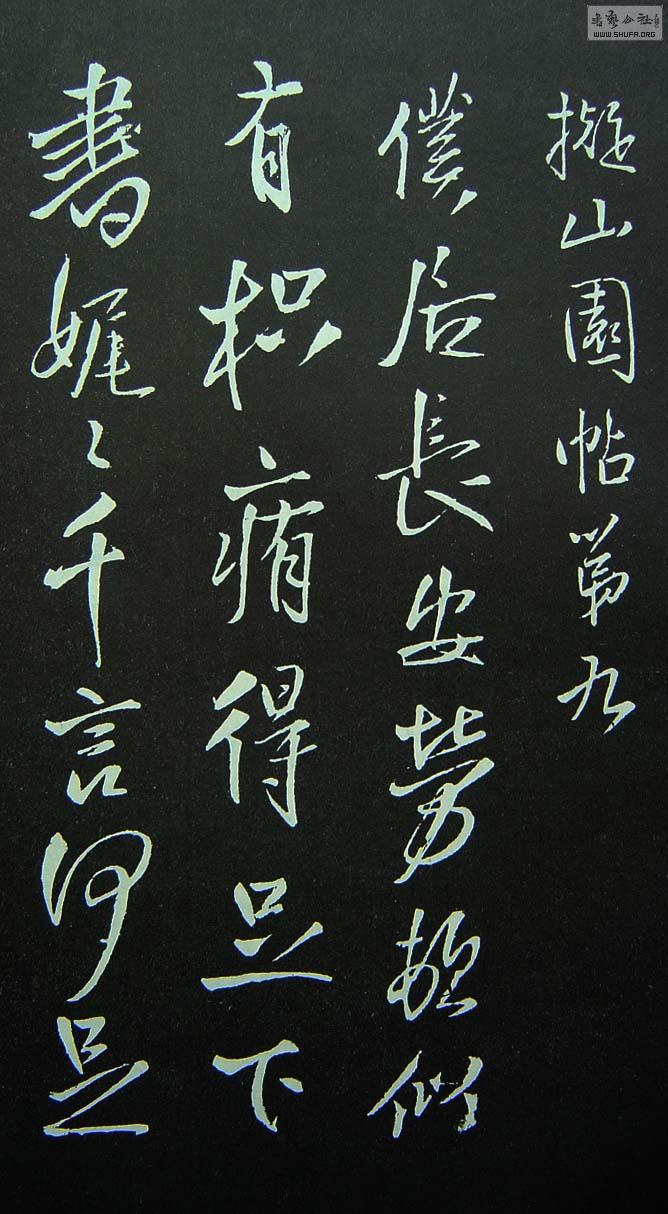 書藝公社
WWW.SHUFA.ORG
擬山園帖第九
僕居長安勞似
有枳痏得足下
書娓々千言何足